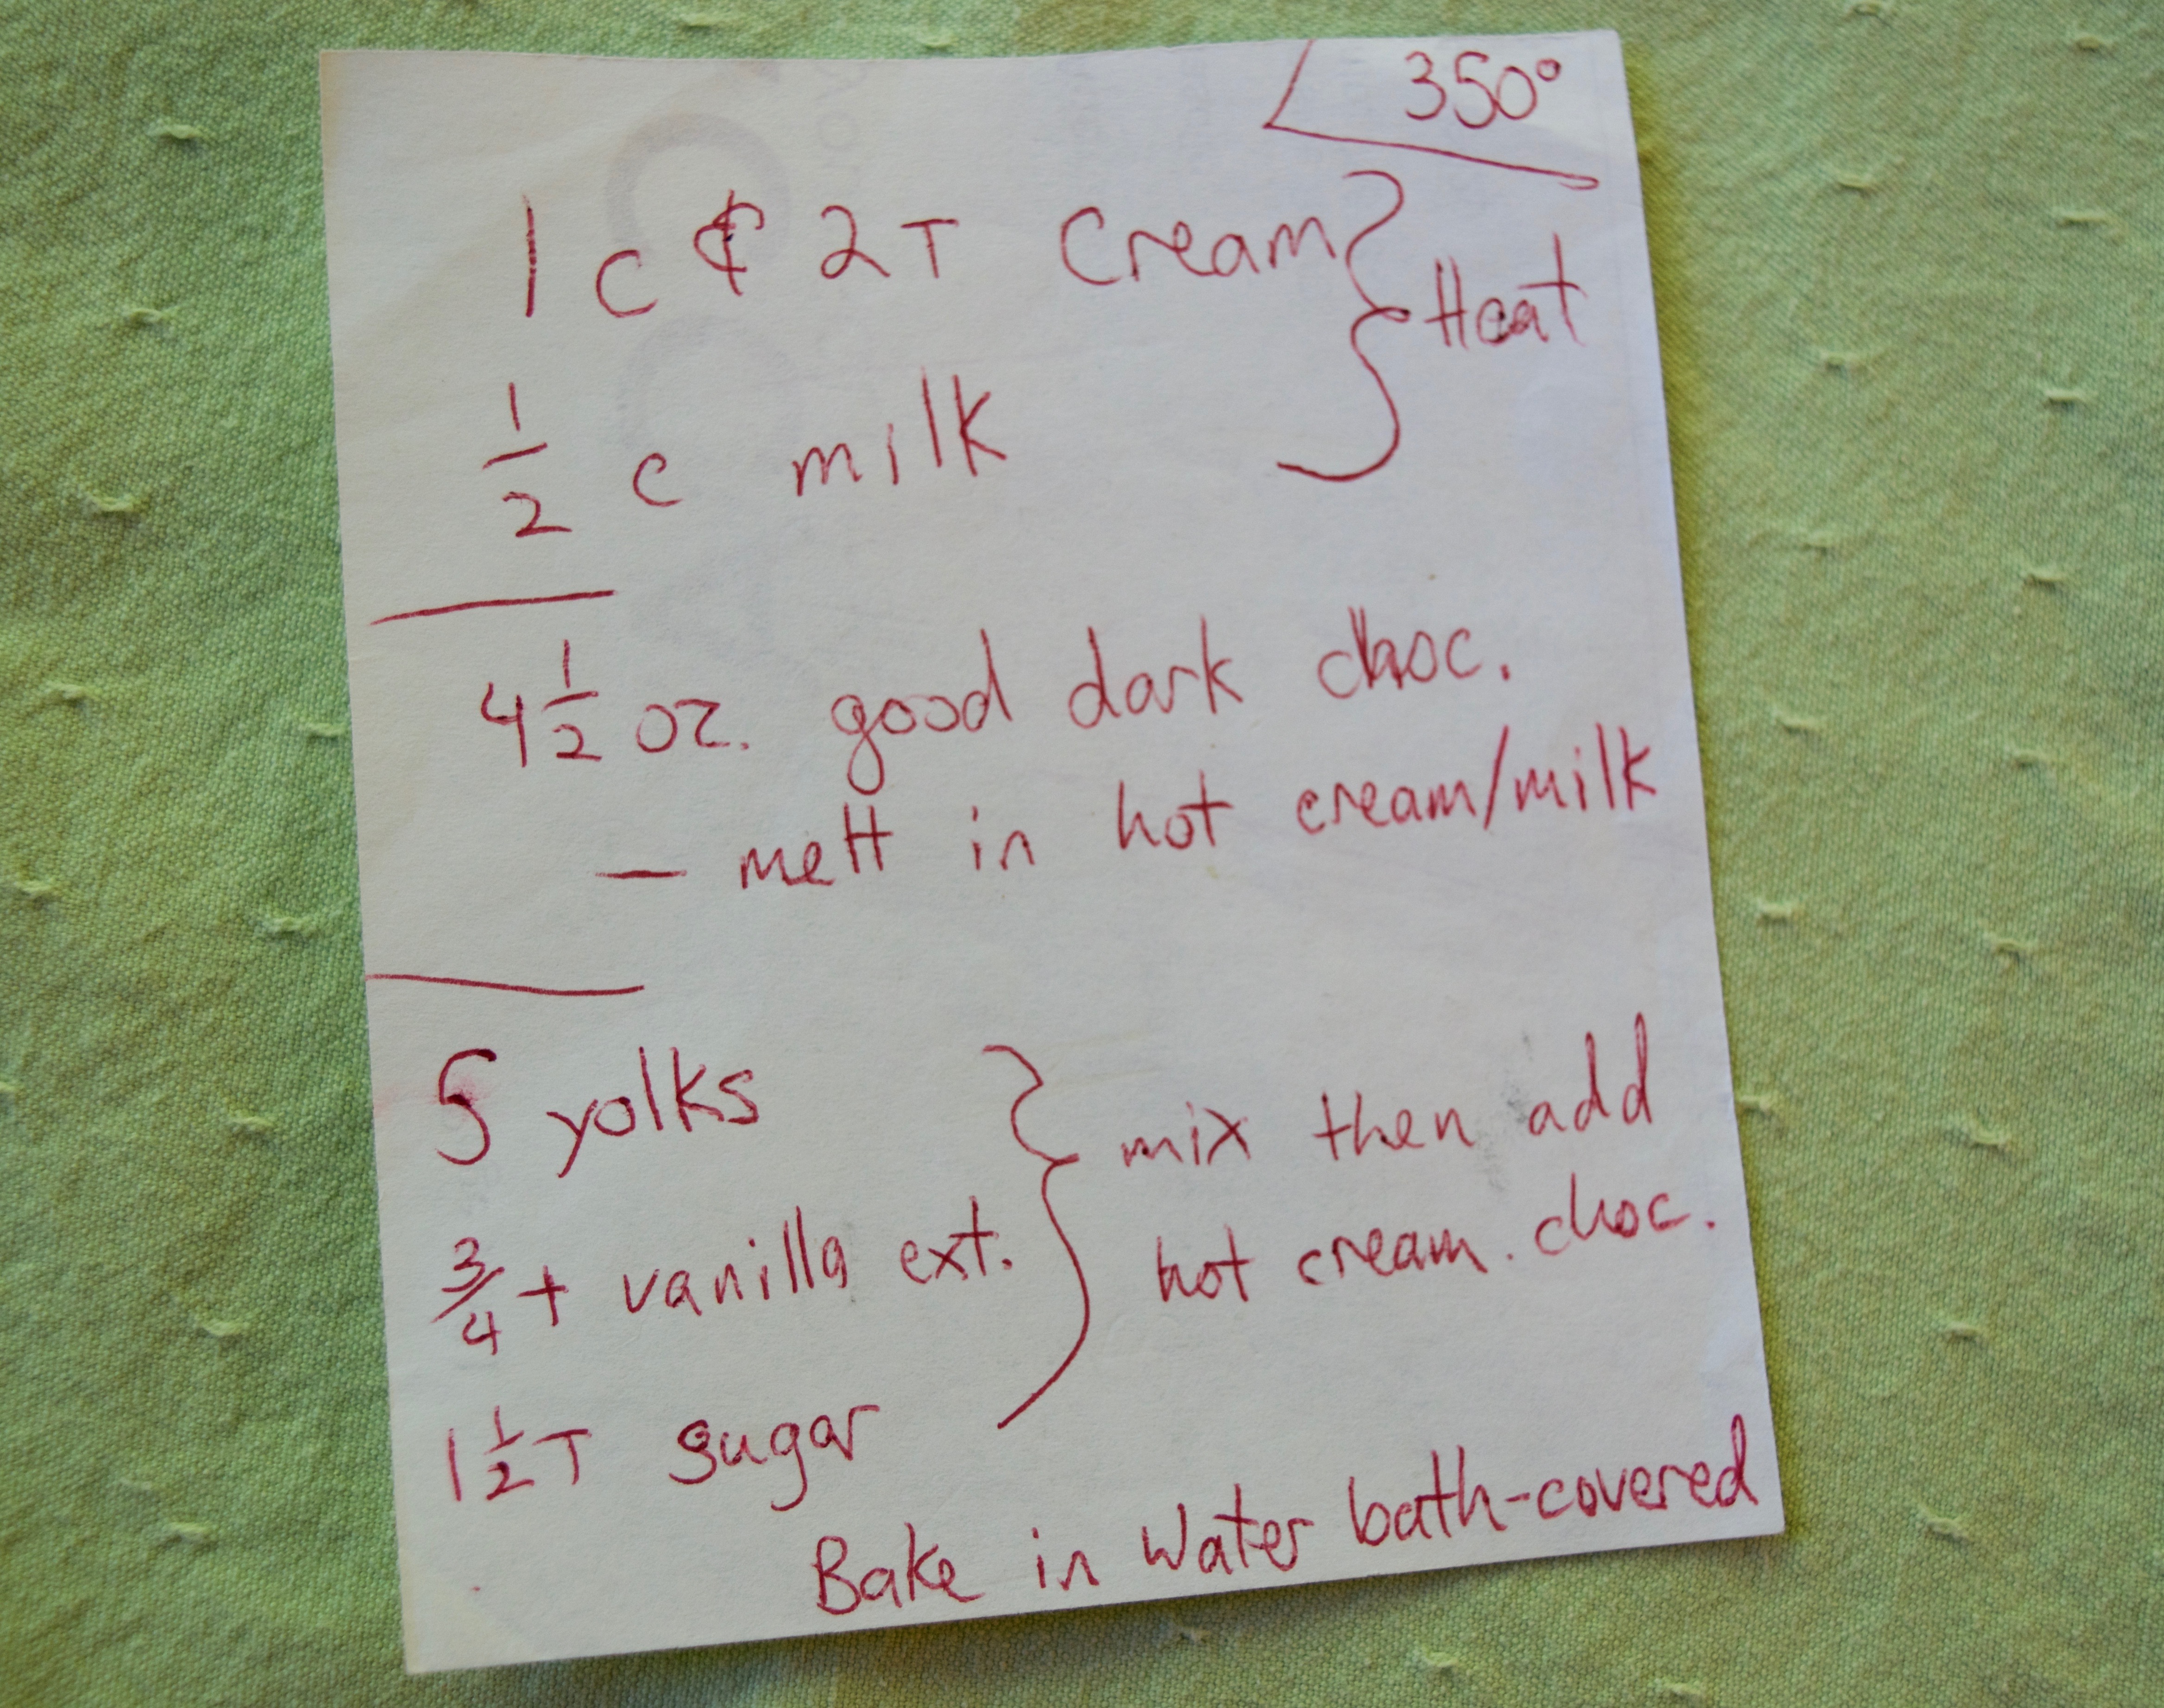 350°
1 c & 2 T Cream
Heat
1/2 c milk
4 1/2 oz. good dark choc.
— melt in hot cream/milk
5 yolks
mix then add
3/4 t vanilla ext.
hot cream. choc.
1 1/2 T sugar
Bake in Water bath-covered